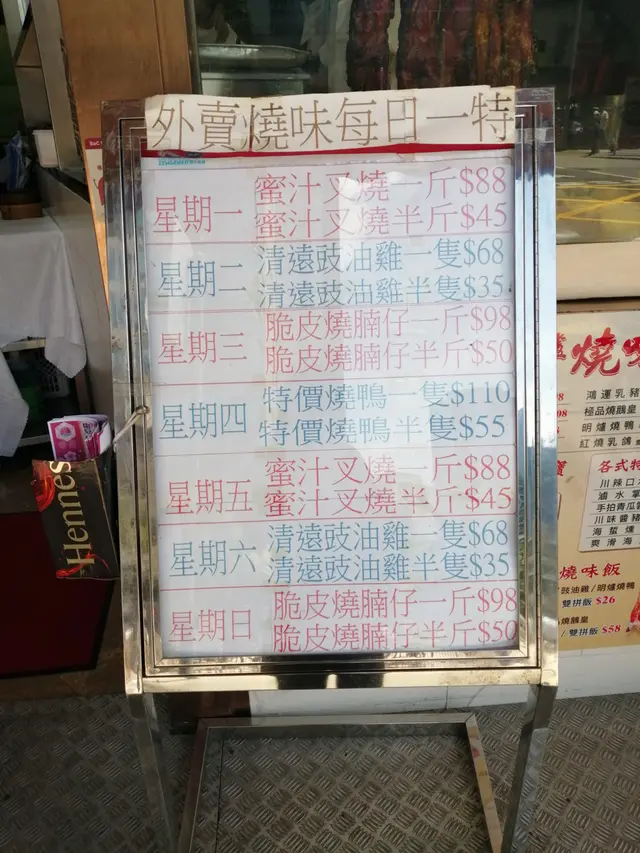 外賣燒味每日一特
星期一
蜜汁叉燒一斤$88
蜜汁叉燒半斤$45
星期二
清遠豉油雞一隻$68
清遠豉油雞半隻$35
星期三
脆皮燒腩仔一斤$98
脆皮燒腩仔半斤$50
星期四
特價燒鴨一隻$110
特價燒鴨半隻$55
星期五
蜜汁叉燒一斤$88
蜜汁叉燒半斤$45
星期六
清遠豉油雞一隻$68
清遠豉油雞半隻$35
星期日
脆皮燒腩仔一斤$98
脆皮燒腩仔半斤$50
Hennes
燒
鴻運乳豬
極品燒鵝皇
明爐燒鴨
紅燒乳鴿
各式特
川辣口
滷水
手拍青瓜
川味醬豬
海蜇
爽滑海
燒味飯
豉油雞/明爐燒鴨
雙拼飯 $26
燒鵝皇
/雙拼飯 $58